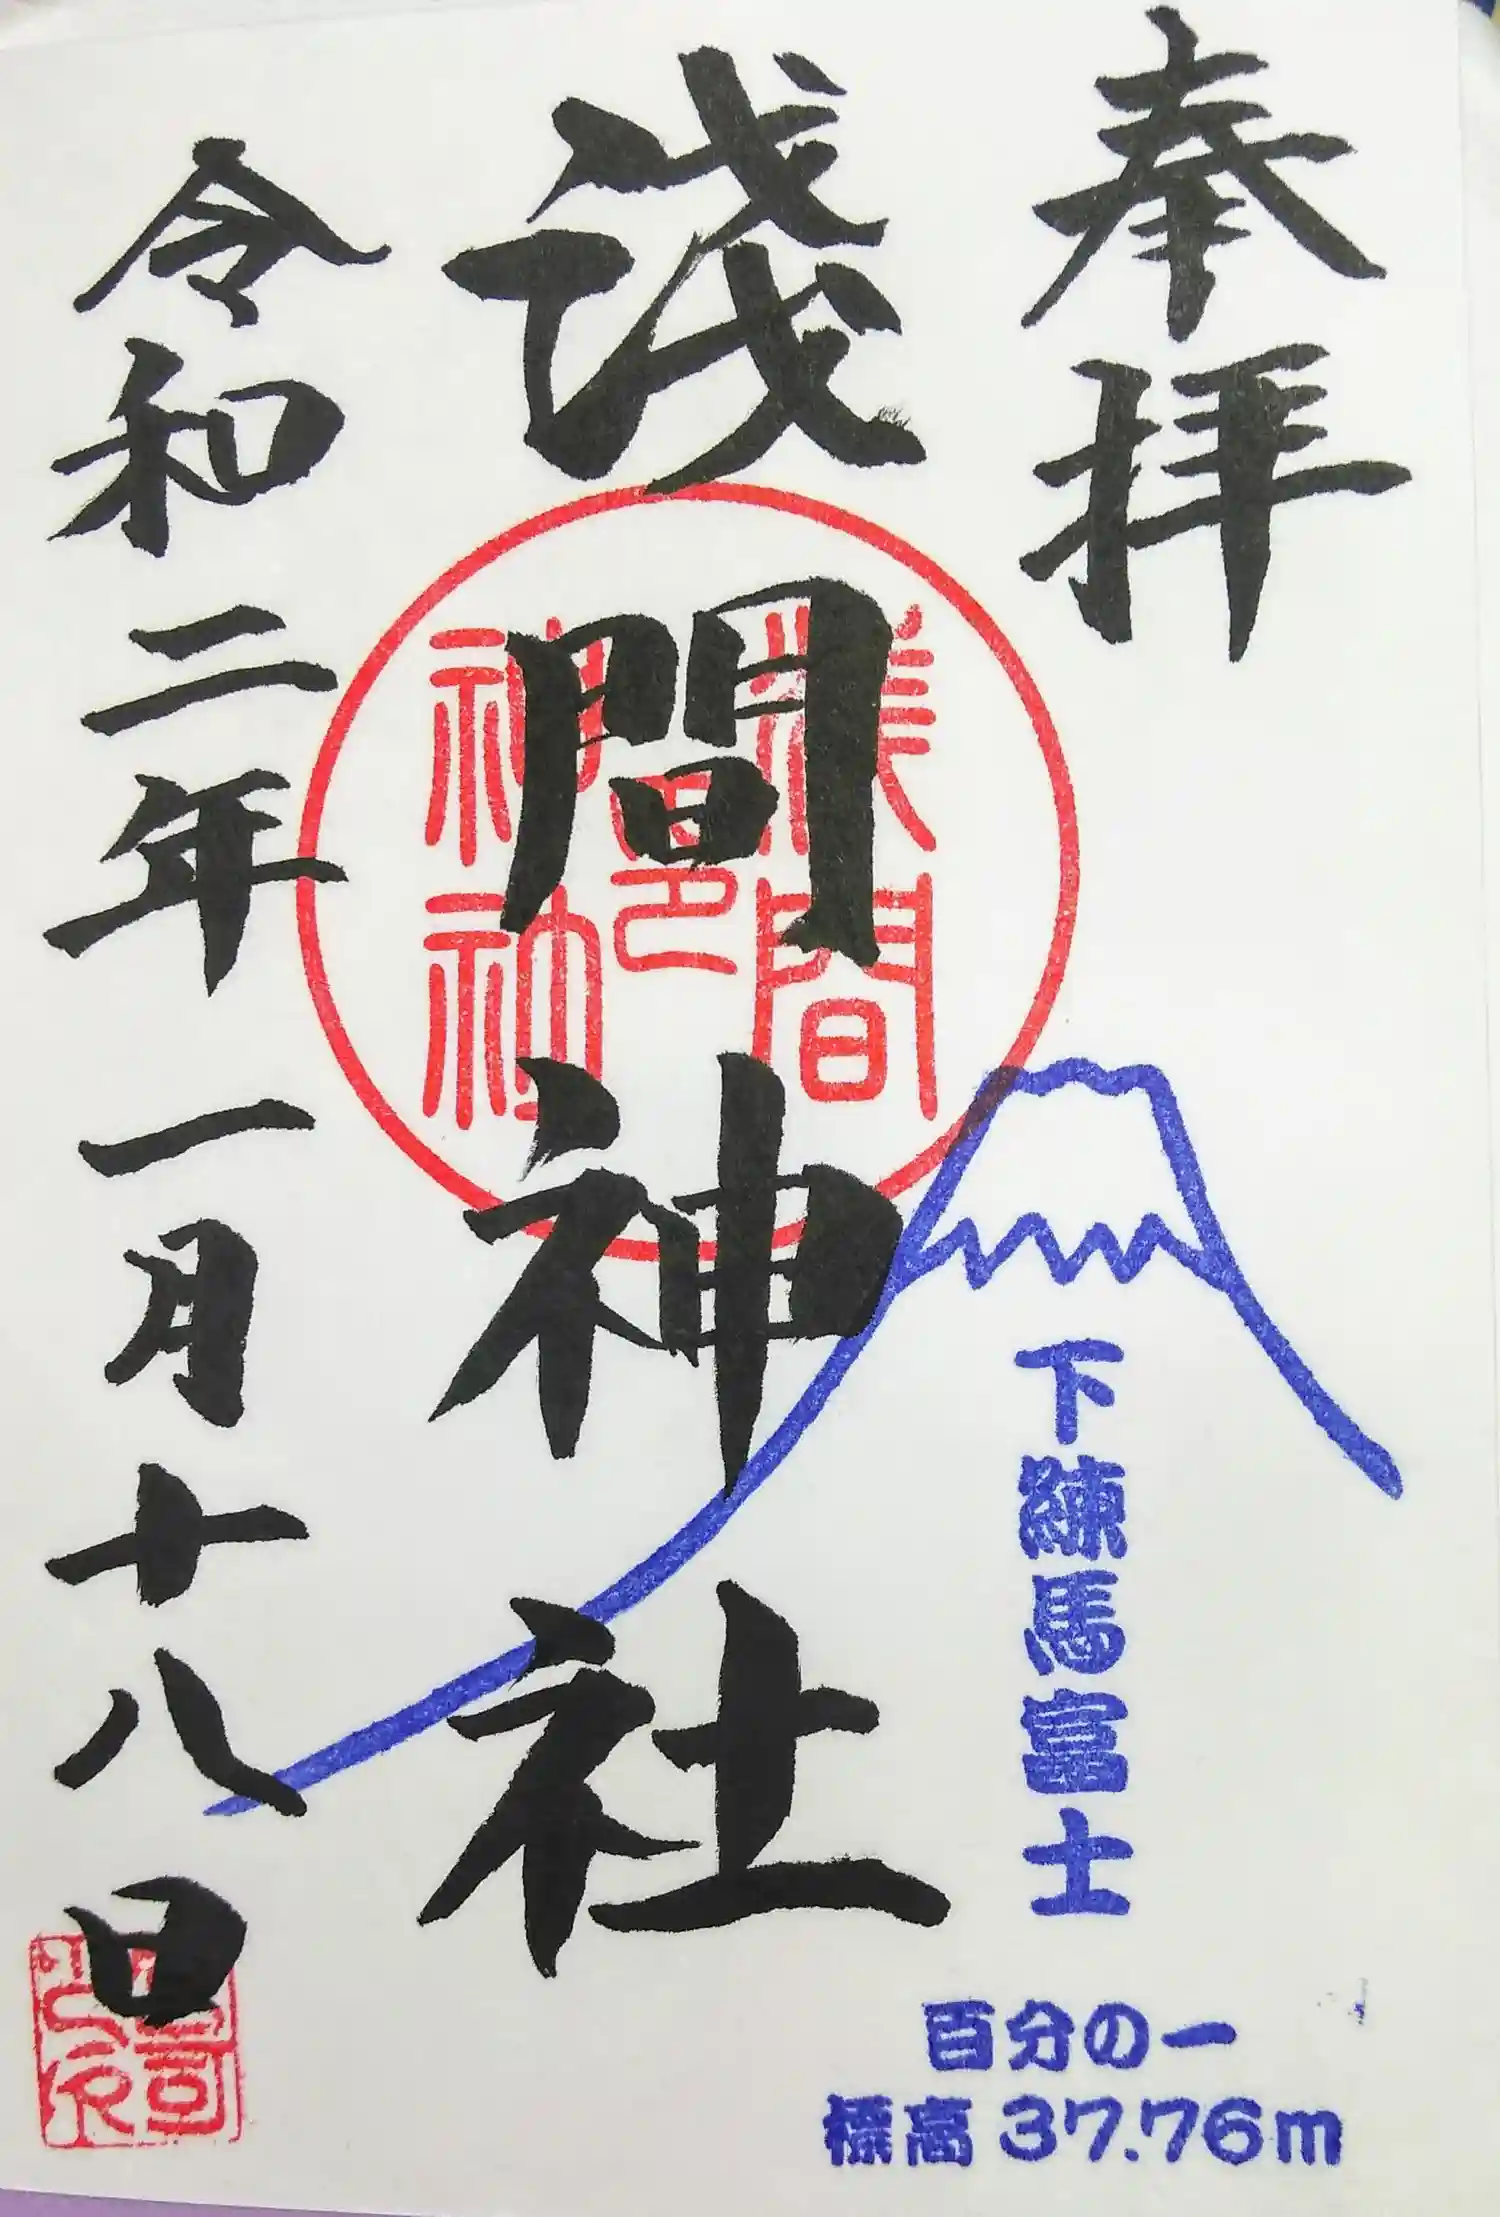 奉拝
下練馬富士
百分の一
標高37.76m
淺間神社
淺間
邑
神社
令和二年一月十八日